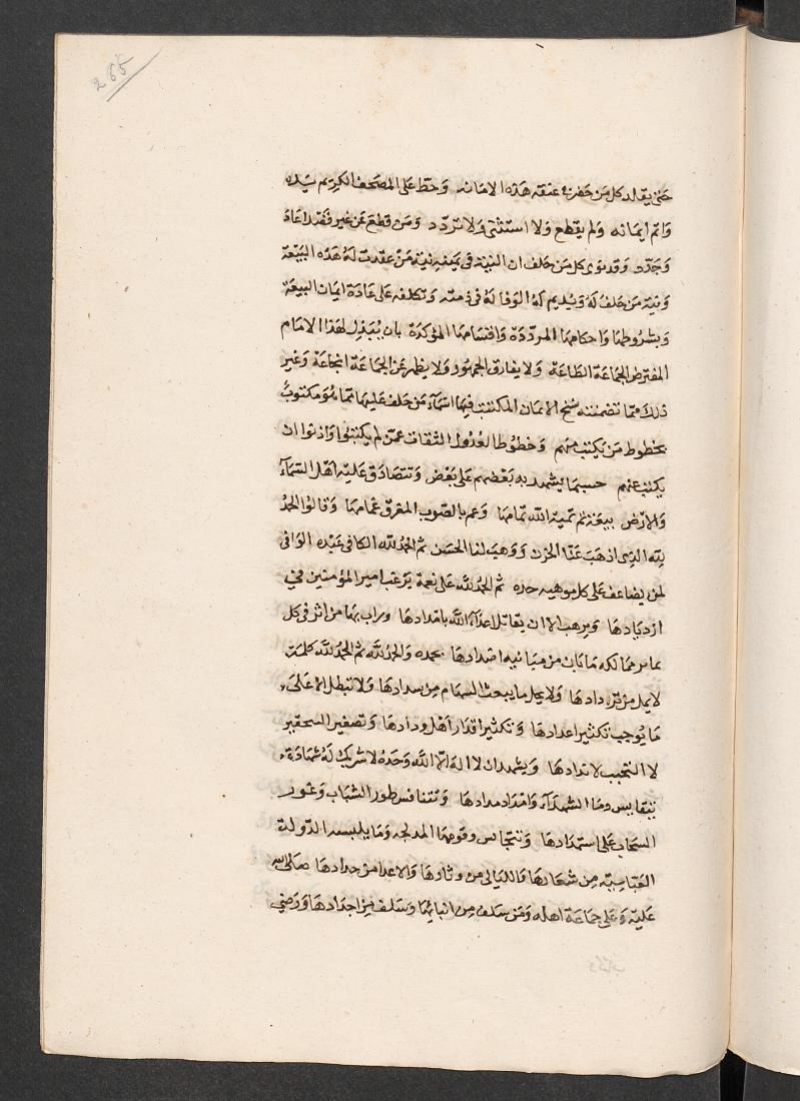 265
حتى يقلد كل من حضر في عنقه هذه الامانه وحط على المصحف الكريم يده
واتم ايمانه ولم يقطع ولا استثنى ولا تردد ومن قطع عن غير قصد اعاد
وجدد وقد نوى كل من حلف ان النية في يمينه نية من عقدت له هذه البيعة
ونية من حلف له وتديم له الوفا له في ذمته وتكلفه على عادة ايمان البيعة
وبشروطها واحكامها المرددة واقسامها المؤكدة بان يبذل لهذا الامام
المفترض الجماعة الطاعة ولا يفارق الجمهور ولا يظهر عن الجماعة انجماعة وغير
ذلك مما تضمنته نسخ الايمان المكتتب فيها اسماء من حلف عليها مما هو مكتوب
بخطوط من يكتب منهم وخطوط العدول الثقات عمن لم يكتبوا واذنوا ان
يكتب عنهم حسبما يشهد به بعضهم على بعض وتتصادق عليه اهل السماء
والارض بيعة تم بمية الله تمامها وعم بالصوب المغرق غمامها وقالوا الحمد
لله الذى اذهب عنا الحزن ووهب لنا الحسن ثم الحمد لله الكافى عبده الوافى
لمن يضاعف على كل موهبه حمده ثم الحمد لله على نعمة يرغب امير المؤمنين في
ازديادها ويرهب الا ان يقاتل اعداء الله بامدادها وراب بها من اثر فى كل
ممالكه ما بان من مباينه اضدادها نحمده والحمد لله ثم الحمد لله كلمة
لا يمل من تردادها ولا يحل ما يبعث السهام من سدادها ولا تبطل الا على
ما يوجب تكثير اعدادها وتكثير اقدار اهل ودادها وتصغير التحقير
لا التحبب لاندادها ويشهد ان لا اله الا الله وحده لا شريك له شهادة
يتقايس دما الشهداء وامداد مدادها وتتنافس طور الشباب وغرر
السحاب على استمدادها وتتجانس رقومها المدبجه وما يلبسه الدولة
العباسية من شعارها والليالى من دثارها والاعدا من حدادها صلى الله
عليه وعلى جماعة اهله ومن سلف من ابنائها وسلف من اجدادها ورضي